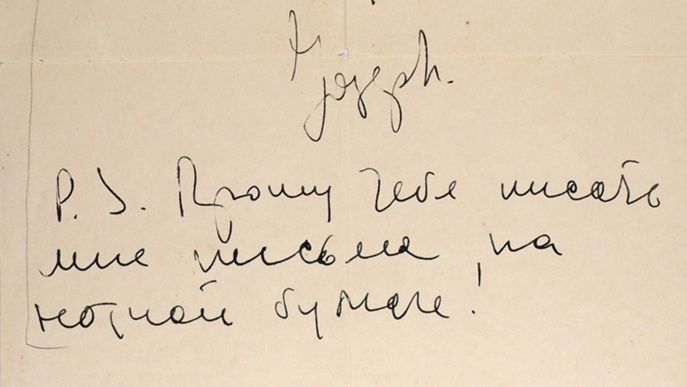 Joseph.
P.S. Прошу тебе писать
мне письма на
нотной бумаге!